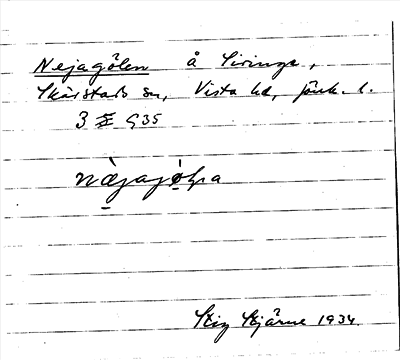 Nejagölen å Siringe,
Skärstads sn, Vista hd, Jönk. l.
3 G35
Stig Stjärne 1934.